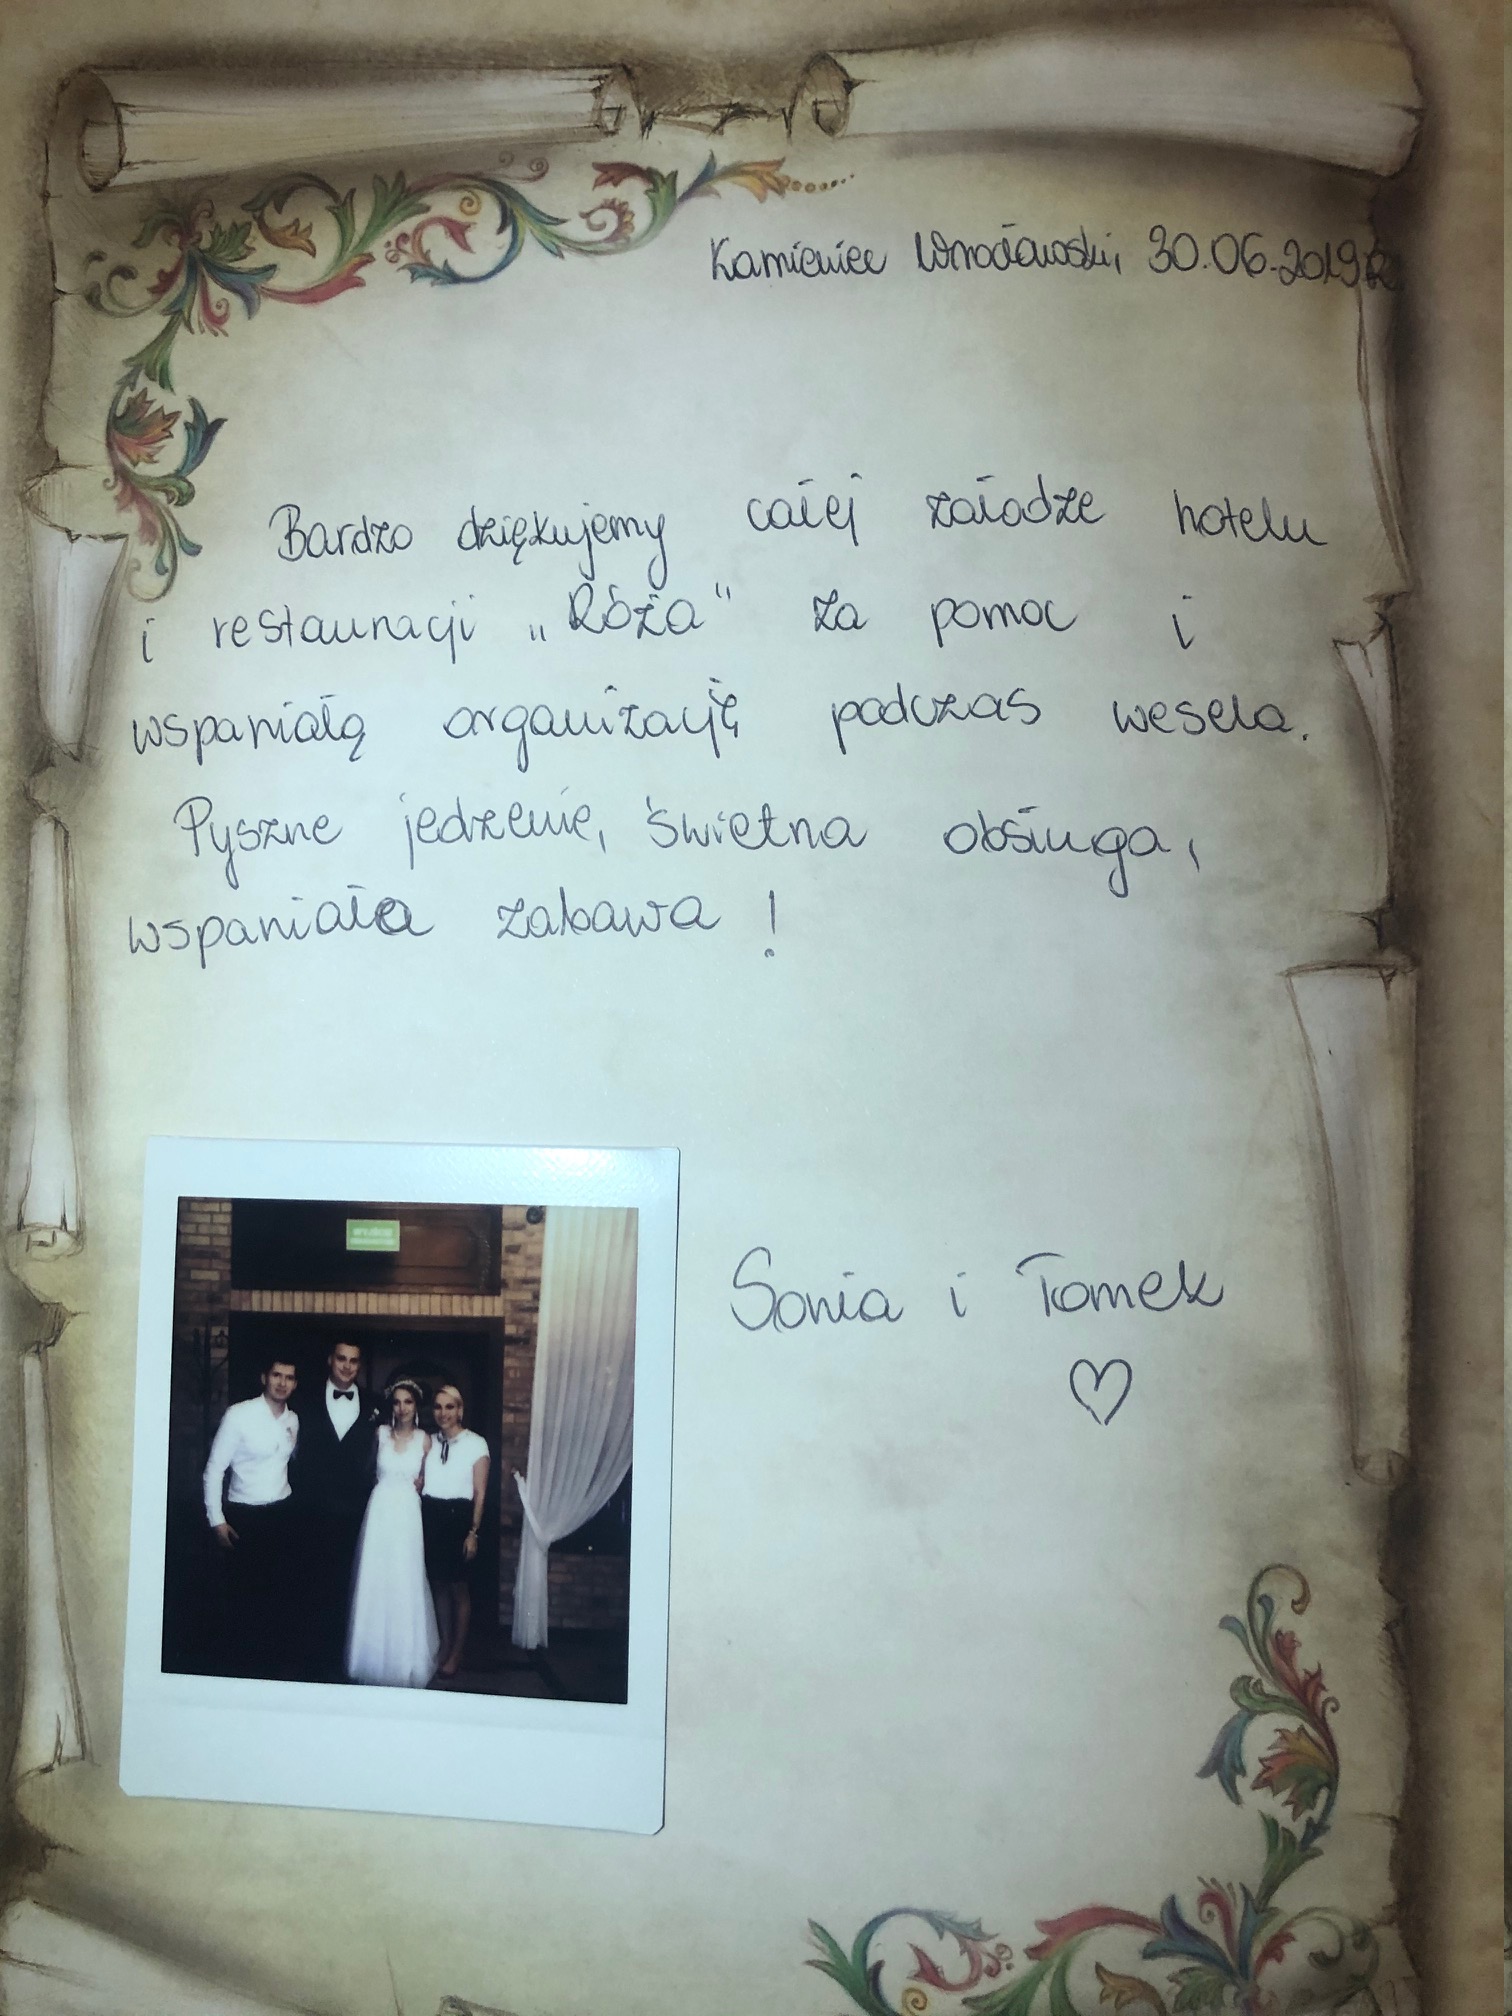 Kamieniec Wrocławski, 30.06.2019r.
Bardzo dziękujemy całej załodze hotelu
i restauracji „Róża" za pomoc i
wspaniałą organizację podczas wesela.
Pyszne jedzenie, świetna obsługa,
wspaniała zabawa!
Sonia i Tomek